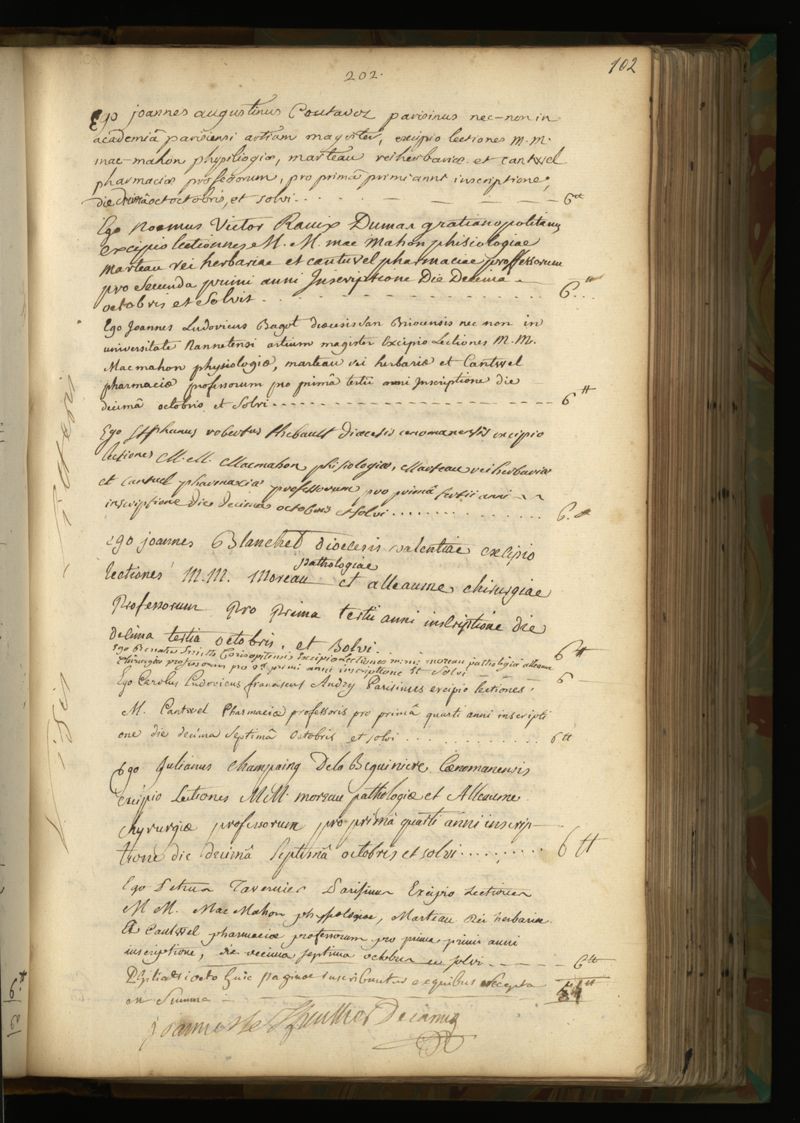 202.
102
Ego joannes augustinus Coutavoz parisinus nec-non in
academiâ parisiensi artium magister, excipio lectiones m.m.
mac-mahon physiologiæ, marteau rei herbariæ et cantwel
pharmaciæ professorum, pro primâ primi anni inscriptione,
die octobris, et solvi 6tt
Ego Victor Dumas gratianopolitanus
excipio lectionnes M. M. mac Mahon phisiologiae
marteau rei herbariae et cantwel pharmaciae proffessorum
pro secunda primi anni Inscriptione Die Decima
octobris et Solvit 6tt
Ego Joannes Ludovicus Bagot diocesis San Briocensis nec non in
universitate Nannetensi artium magister Excipio Lectiones M. M.
Macmahon physiologiæ, marteau rei herbariæ et Cantwel
pharmaciæ professorum pro primâ tertii anni Inscriptione die
decimâ octobris et Solvi 6tt
Ego Stephanus robertus thebault Diocesis cenomanensis excipio
lectiones M. M. Macmahon phisiologiæ, Marteau rei herbariæ
et Cantuel pharmaciæ professorum pro primâ tertii anni
inscriptione Die decima octobris et solvi 6tt
ego joannes Blanchet dioecesis valentiae excipio
lectiones M.M. Moreau pathologiae et alleaume chirurgiae
Professorum pro prima tertii anni inscriptione die
decima tertia octobris, et solvi 6tt
Ego Renatus excipio lectiones m.m. moreau pathologiæ alleaume
chirurgiæ professorum pro 2a primi anni inscriptione et solvi 6
Ego Carolus Ludovicus franciscus Andry Parisinus excipio lectiones
M. Cantwel Pharmaciæ professoris pro primâ quarti anni inscripti
one die decima septimâ octobris et solvi 6tt
Ego Julianus Champaing Dela Beguiniere Cænomanensis
excipio Lectiones MM. moreau pathologiæ et Alleaume
chyrurgiæ professorum pro primâ quarti anni inscrip-
tione die decimâ septimâ octobris et solvi 6tt
Ego Petrus Tavernier Parisinus Excipio Lectiones
M M. Mac Mahon physologiae, Marteau Rei herbariæ
Et Cantwel pharmaciæ professorum pro prima primi anni
inscriptione, die decima septima octobris et solvi 6tt
octo huic paginæ inscribuntur e quibus recepta
in Summa 54tt
joannes le Thieullier Decanus